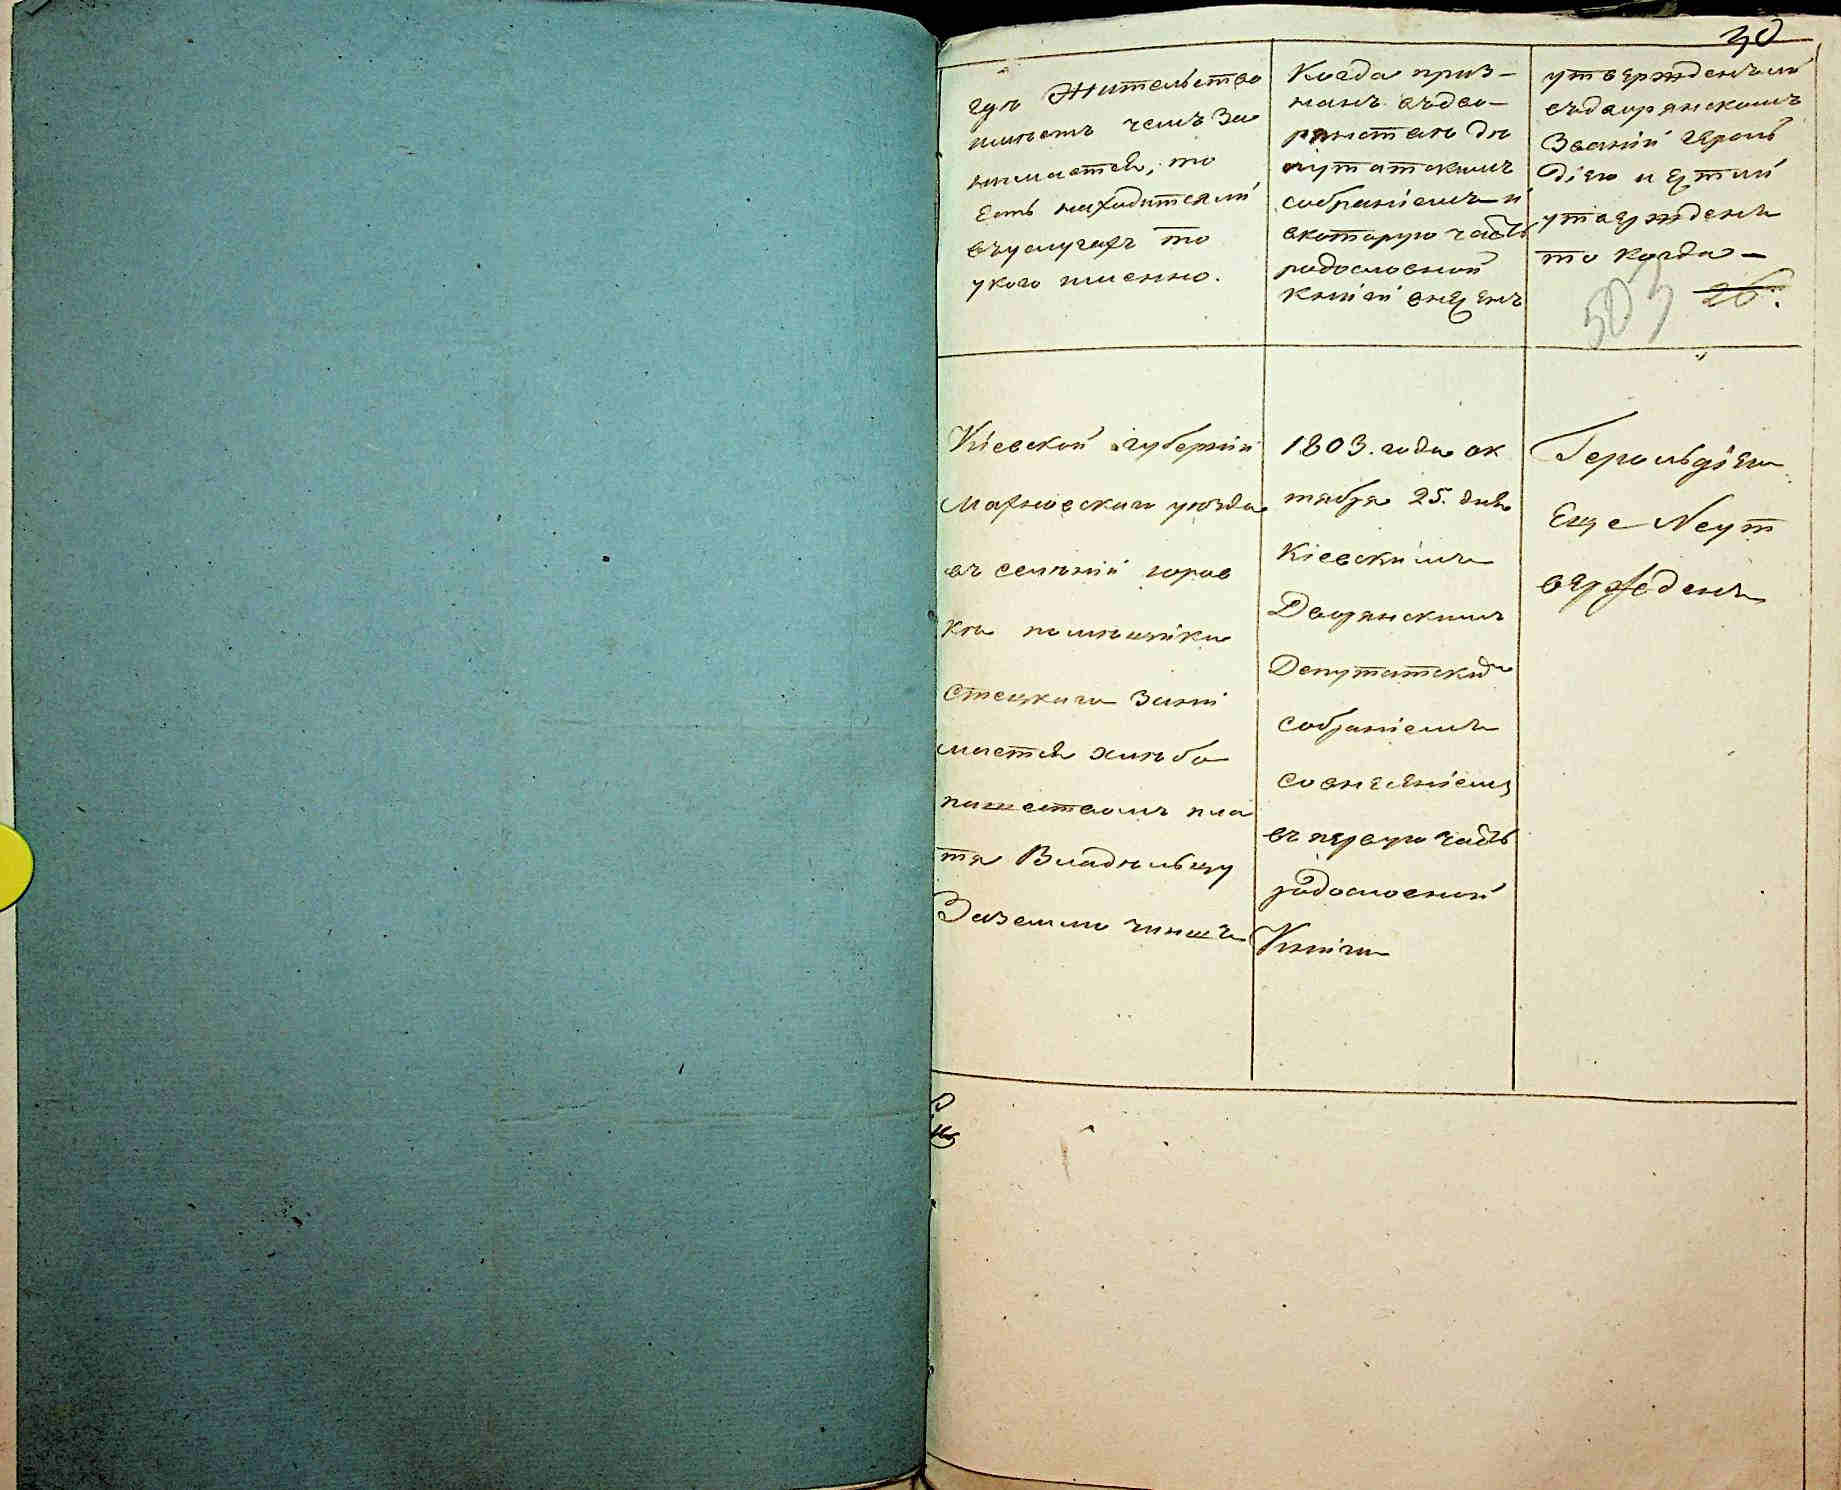 30
гдѣ Жительство
имѣетъ чемъ За
нимается, то
Есть находится ли
въуслугахъ то
укого именно.
Когда приз-
нанъ въдво-
рянство де
путатскимъ
собраніемъ и
вкоторую часть
родословной
Книги внесенъ
утвержденъ ли
въдворянскомъ
Званіи Героль
діею и Естли
утвержденъ
то когда -
503
26.
Кіевской губерніи
Махновского уезда
въ селеніи юров
кѣ помѣщика
Стецкаго Зани
мается хлѣбо
пашествомъ пла
тя Владѣльцу
Заземлю чиншъ
1803. года ок
тября 25. дня
Кіевскимъ
Дворянскимъ
Депутатским
собраніемъ
совнесеніемъ
въ первую часть
родословной
Книги
Герольдіею
Еще Неут
вержденъ